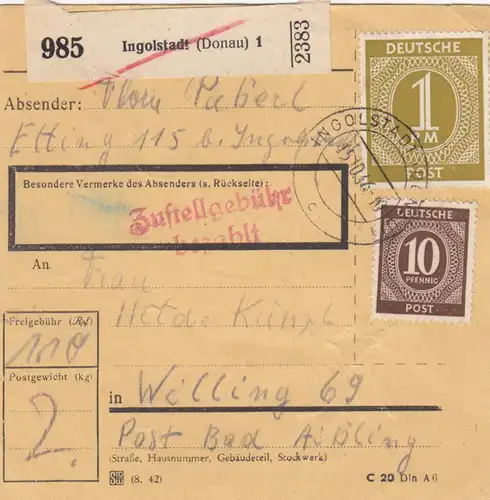 985 Ingolstadt (Donau) 1 2383
DEUTSCHE
1
M
POST
Absender:
Etting 115 b.
INGOLSTADT
Besondere Vermerke des Absenders (s. Rückseite):
Zustellgebühr
bezahlt
An
Frau
DEUTSCHE
10
PFENNIG
POST
Freigebühr (Rpf)
110
Postgewicht (kg)
2.
in Willing 69
Post Bad Aibling
(Straße, Hausnummer, Gebäudeteil, Stockwerk)
(8. 42)
C 20 Din A6